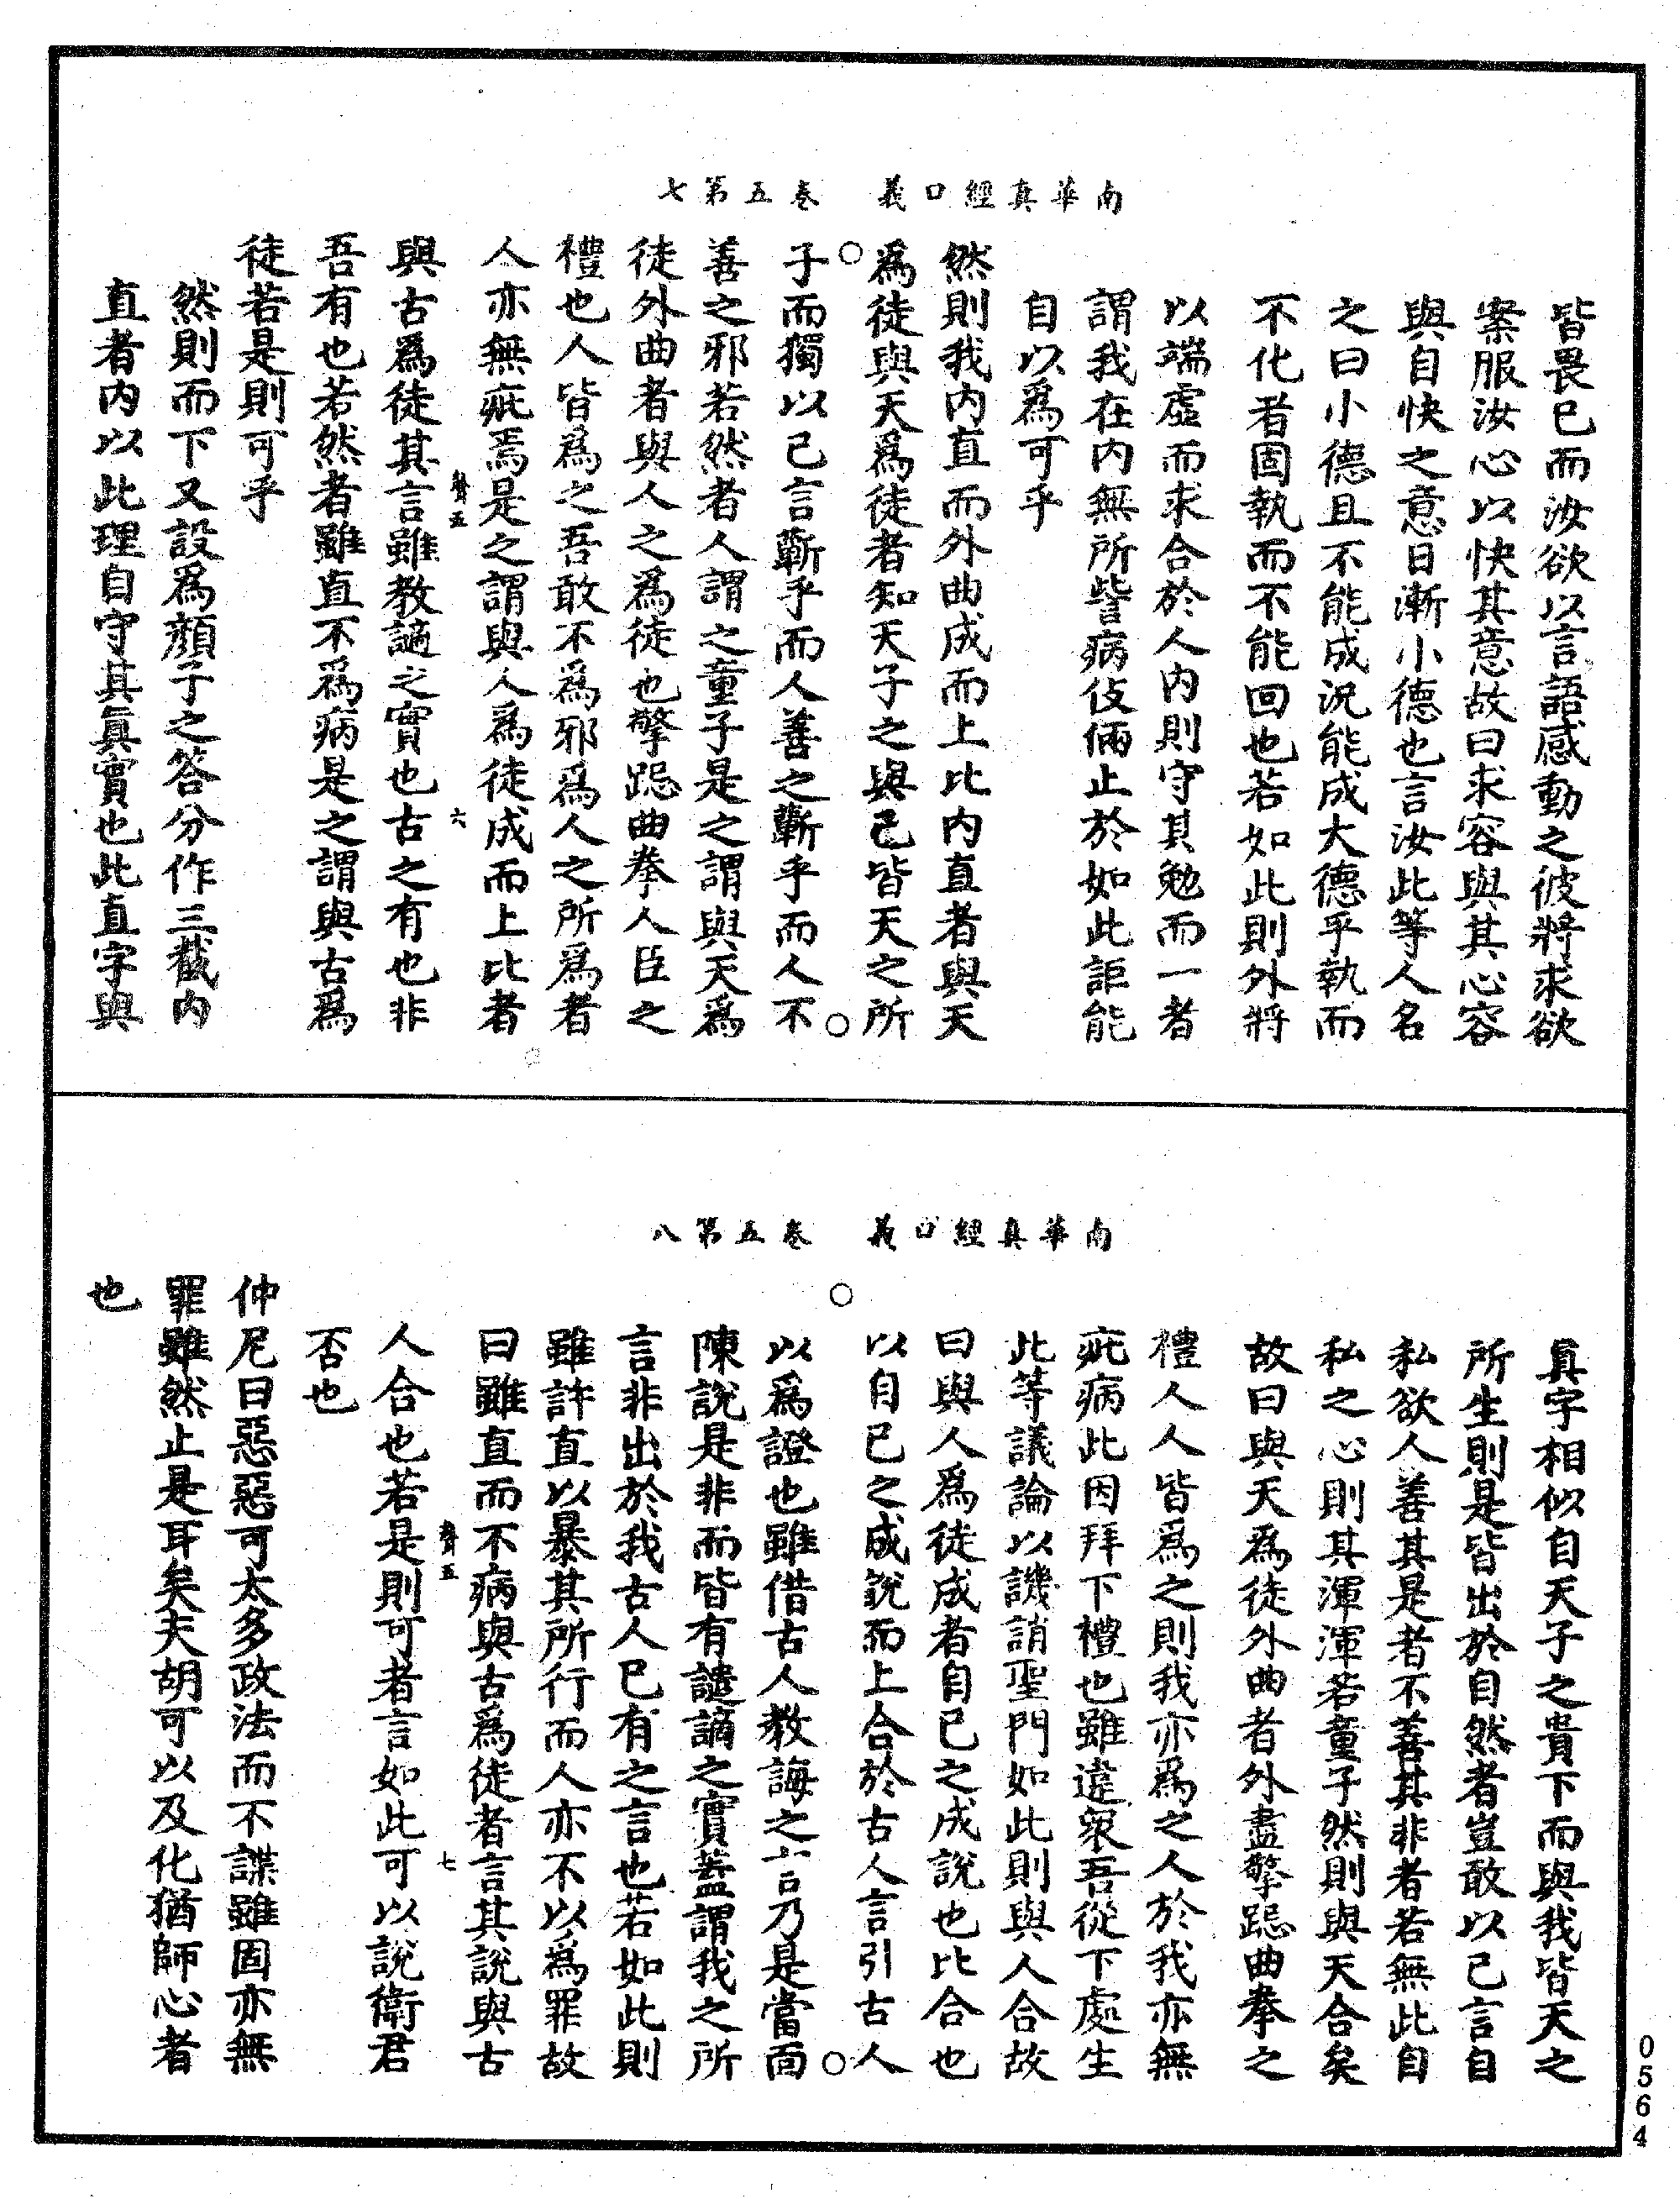 南華真經口義　卷五第七
皆畏已而汝欲以言語感動之彼將求欲
案服汝心以快其意故曰求容與其心容
與自快之意日漸小德也言汝此等人名
之曰小德且不能成況能成大德乎執而
不化者固執而不能回也若如此則外將
以端虛而求合於人内則守其勉而一者
謂我在内無所訾病伎倆止於如此詎能
自以爲可乎
然則我内直而外曲成而上比内直者與天
爲徒與天爲徒者知天子之與己皆天之所
子而獨以己言蘄乎而人善之蘄乎而人不
善之邪若然者人謂之童子是之謂與天爲
徒外曲者與人之爲徒也擎跽曲拳人臣之
禮也人皆爲之吾敢不爲邪爲人之所爲者
人亦無疵焉是之謂與人爲徒成而上比者
聲五　六
與古爲徒其言雖教讁之實也古之有也非
吾有也若然者雖直不爲病是之謂與古爲
徒若是則可乎
然則而下又設爲顏子之答分作三截内
直者内以此理自守其眞實也此直字與
南華真經口義　卷五第八
眞字相似自天子之貴下而與我皆天之
所生則是皆出於自然者豈敢以己言自
私欲人善其是者不善其非者若無此自
私之心則其渾渾若童子然則與天合矣
故曰與天爲徒外曲者外盡擎跽曲拳之
禮人人人皆爲之則我亦爲之人於我亦無
疵病此因拜下禮也雖違衆吾從下處生
此等議論以譏誚聖門如此則與人合故
曰與人爲徒成者自已之成說也比合也
以自已之成說而上合於古人言引古人
以爲證也雖借古人教誨之言乃是當面
陳說是非而皆有譴謫之實蓋謂我之所
言非出於我古人已有之言也若如此則
雖許直以暴其所行而人亦不以爲罪故
曰雖直而不病與古爲徒者言其說與古
聲五　七
人合也若是則可者言如此可以說衛君
否也
仲尼曰惡惡可太多政法而不諜雖固亦無
罪雖然止是耳矣夫胡可以及化猶師心者
也
0564